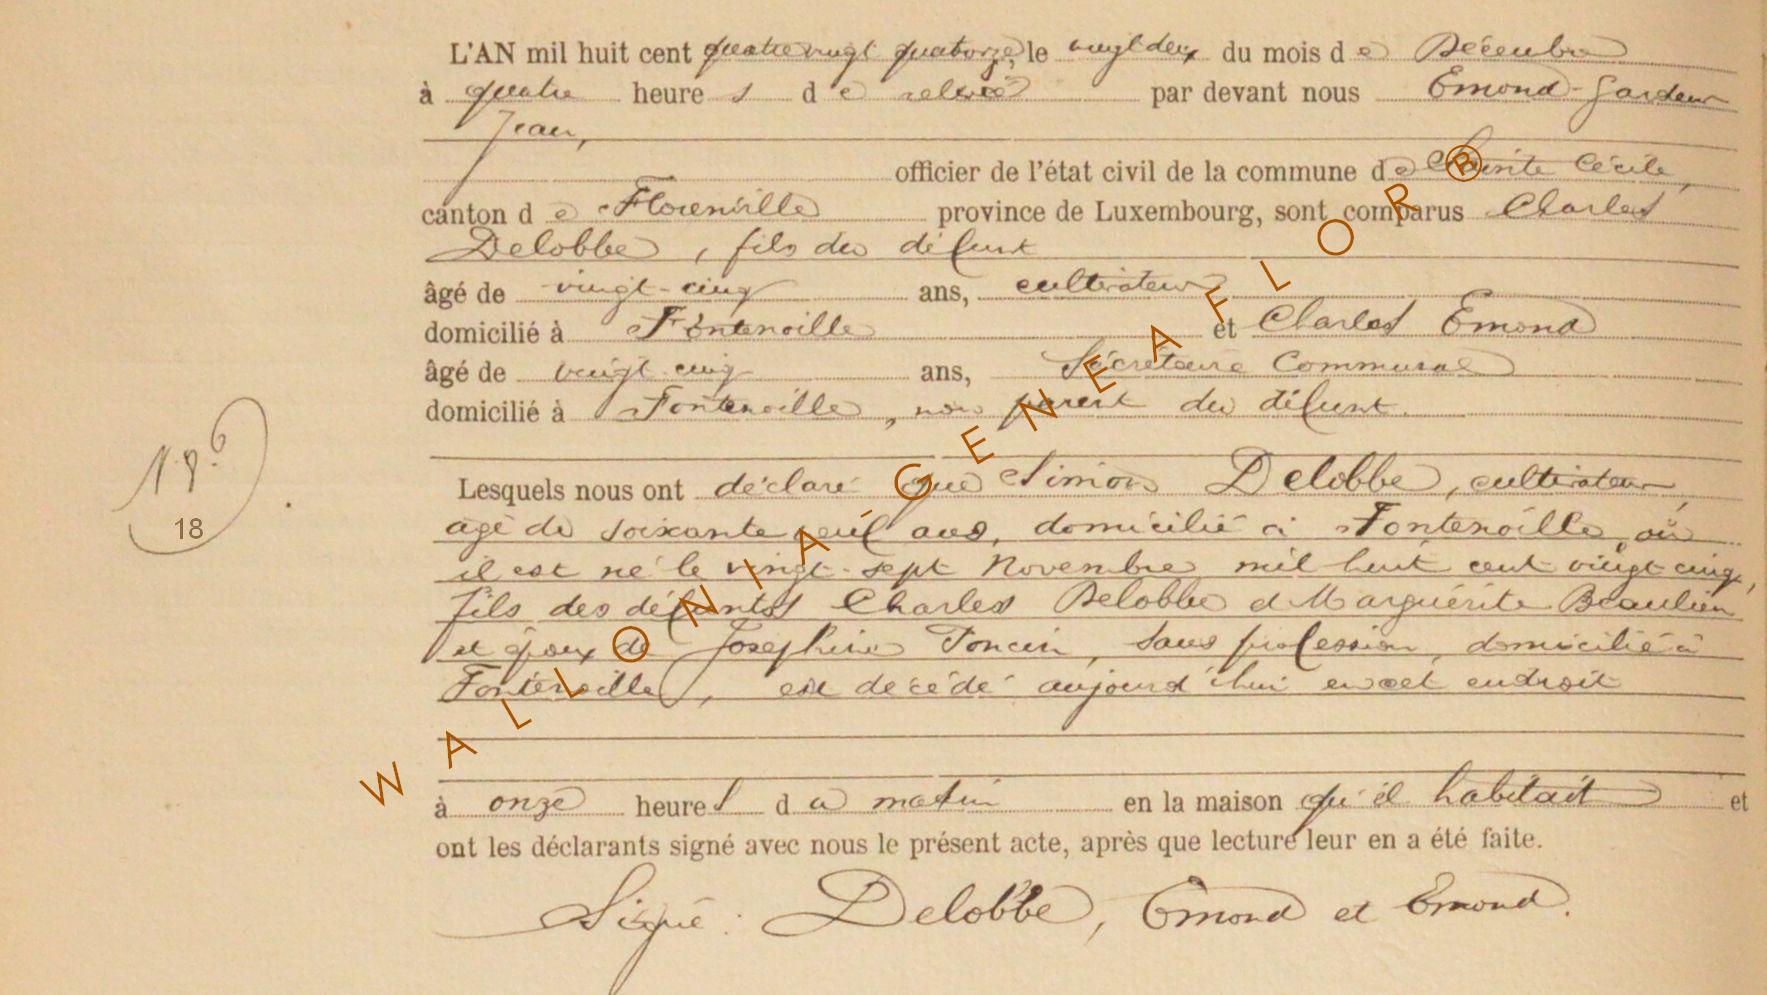 L'AN mil huit cent quatre vingt quatorze, le vingt deux du mois de Décembre
à quatre heures de relevée par devant nous Emond-Gardeur
Jean,
officier de l'état civil de la commune de Sainte Cécile,
canton de Florenville province de Luxembourg, sont comparus Charles
Delobbe, fils du défunt
âgé de vingt-cinq ans, cultivateur
domicilié à Fontenoille et Charles Emond
âgé de vingt cinq ans, Secrétaire Communal
domicilié à Fontenoille, non parent du défunt.
18e
18
Lesquels nous ont déclaré que Simon Delobbe, cultivateur,
âgé de soixante neuf ans, domicilié à Fontenoille où
il est né le vingt-sept Novembre mil huit cent vingt cinq,
fils des défunts Charles Delobbe et Marguérite Beaulieu
et époux de Joséphine Poncin, sans profession, domicilié à
Fontenoille, est décédé aujourd'hui en cet endroit
à onze heures du matin en la maison qu'il habitait et
ont les déclarants signé avec nous le présent acte, après que lecture leur en a été faite.
Signé : Delobbe, Emond et Emond.
WALLONIA GENEAFLOR ®